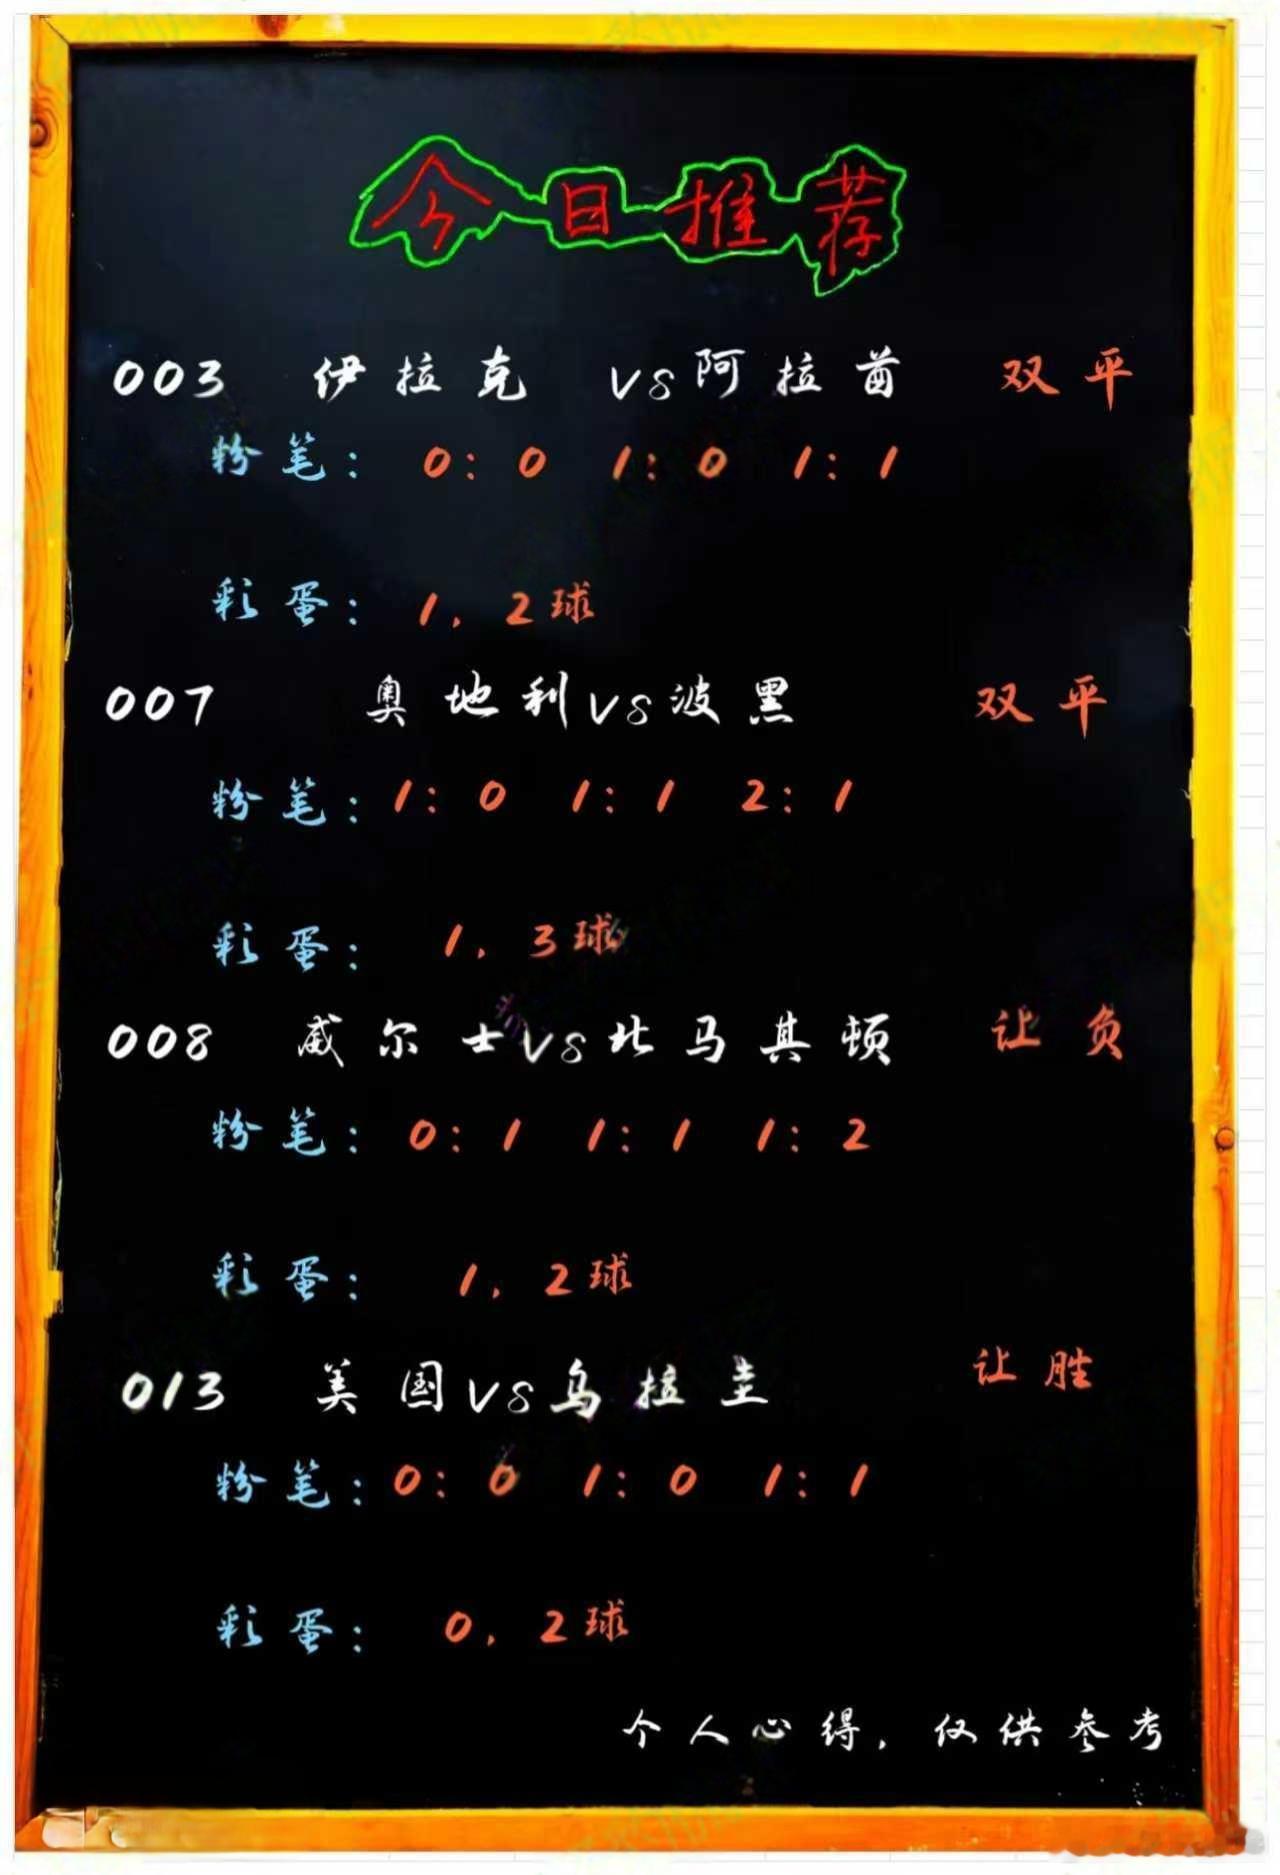 今日推荐
003 伊拉克 vs 阿拉酋 双平
粉笔: 0:0 1:0 1:1
彩蛋: 1, 2球
007 奥地利 vs 波黑 双平
粉笔: 1:0 1:1 2:1
彩蛋: 1, 3球
008 威尔士 vs 北马其顿 让负
粉笔: 0:1 1:1 1:2
彩蛋: 1, 2球
013 美国 vs 乌拉圭 让胜
粉笔: 0:0 1:0 1:1
彩蛋: 0, 2球
个人心得, 仅供参考